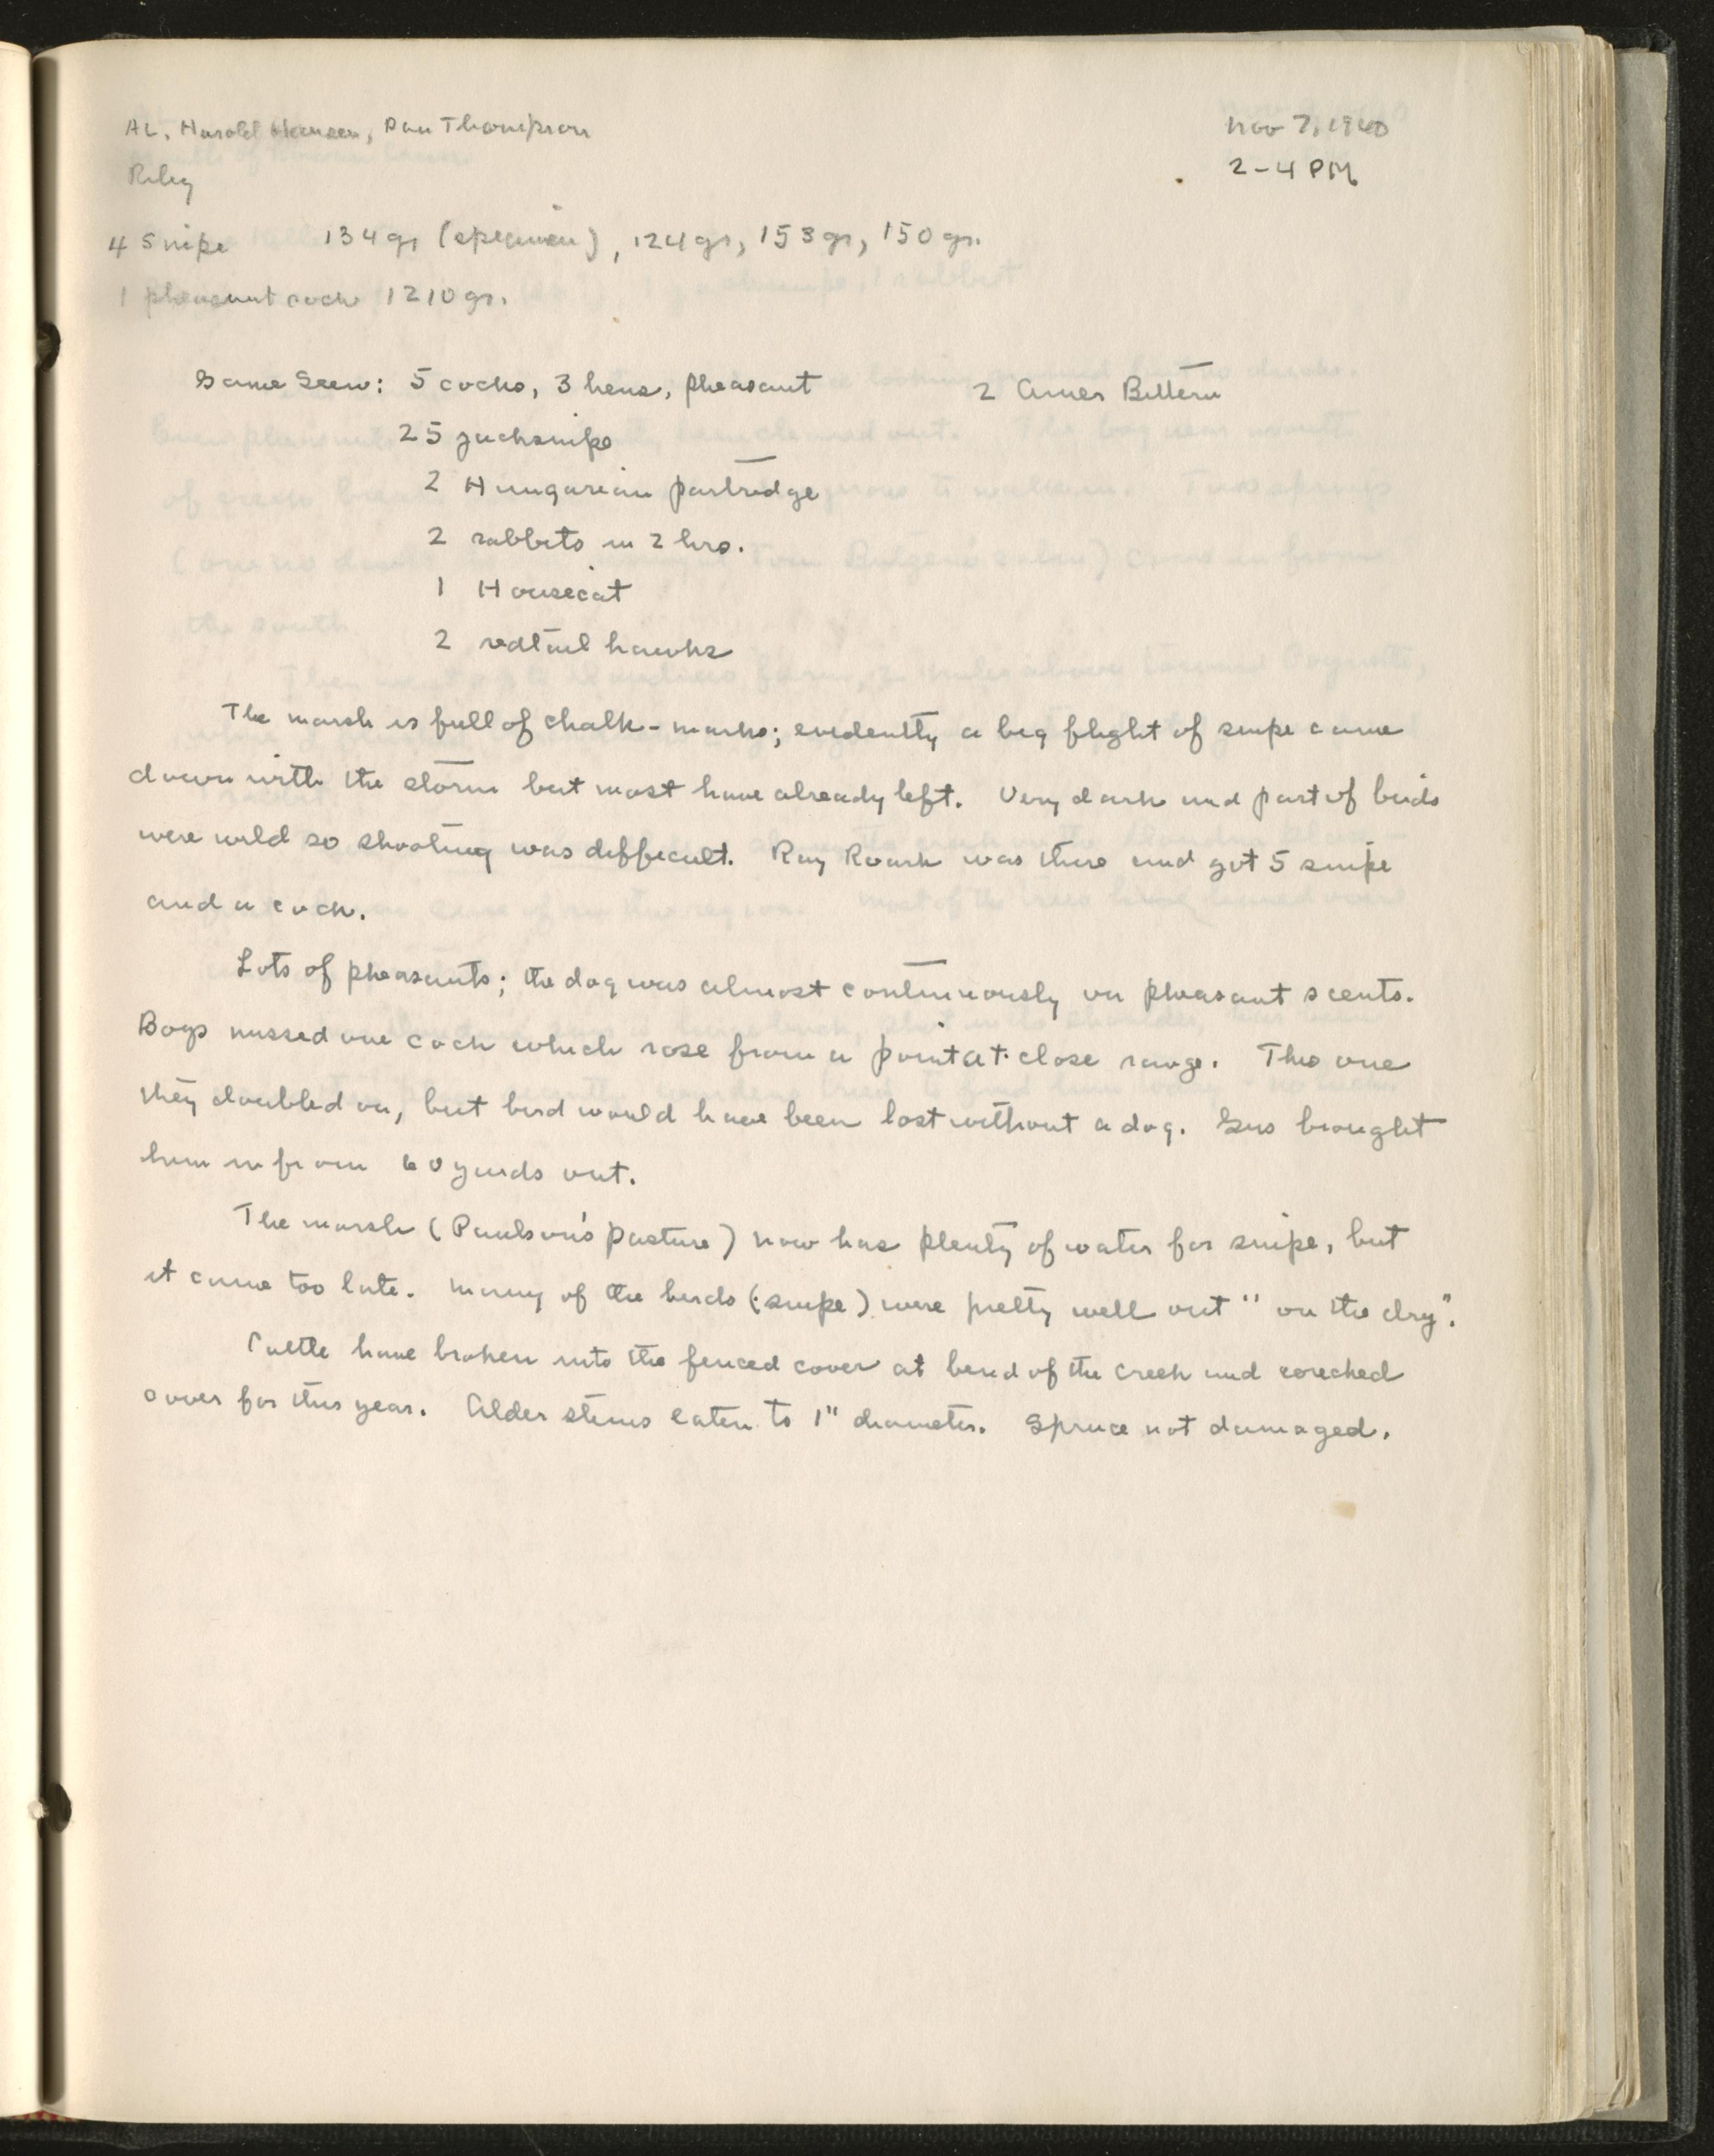 AL, Harold Hansen, Dan Thompson
Nov 7, 1940
Riley
2-4 PM
4 Snipe 134 gr (specimen), 124 gr, 153 gr, 150 gr.
1 pheasant cock 1210 gr.
Game Seen: 5 cocks, 3 hens, pheasant
2 Amer Bittern
25 jacksnipe
2 Hungarian partridge
2 rabbits in 2 hrs.
1 Housecat
2 redtail hawks
The marsh is full of chalk-marks; evidently a big flight of snipe came
down with the storm but most have already left. Very dark and part of birds
were wild so shooting was difficult. Ray Roark was there and got 5 snipe
and a cock.
Lots of pheasants; the dog was almost continuously on pheasant scents.
Boys missed one cock which rose from a point at close range. This one
they doubled on, but bird would have been lost without a dog. Gus brought
him in from 60 yards out.
The marsh (Paulson's pasture) now has plenty of water for snipe, but
it came too late. Many of the birds (snipe) were pretty well out "on the dry".
Cattle have broken into the fenced cover at bend of the creek and
cover for this year. Alder stems eaten to 1" diameter. Spruce not damaged.